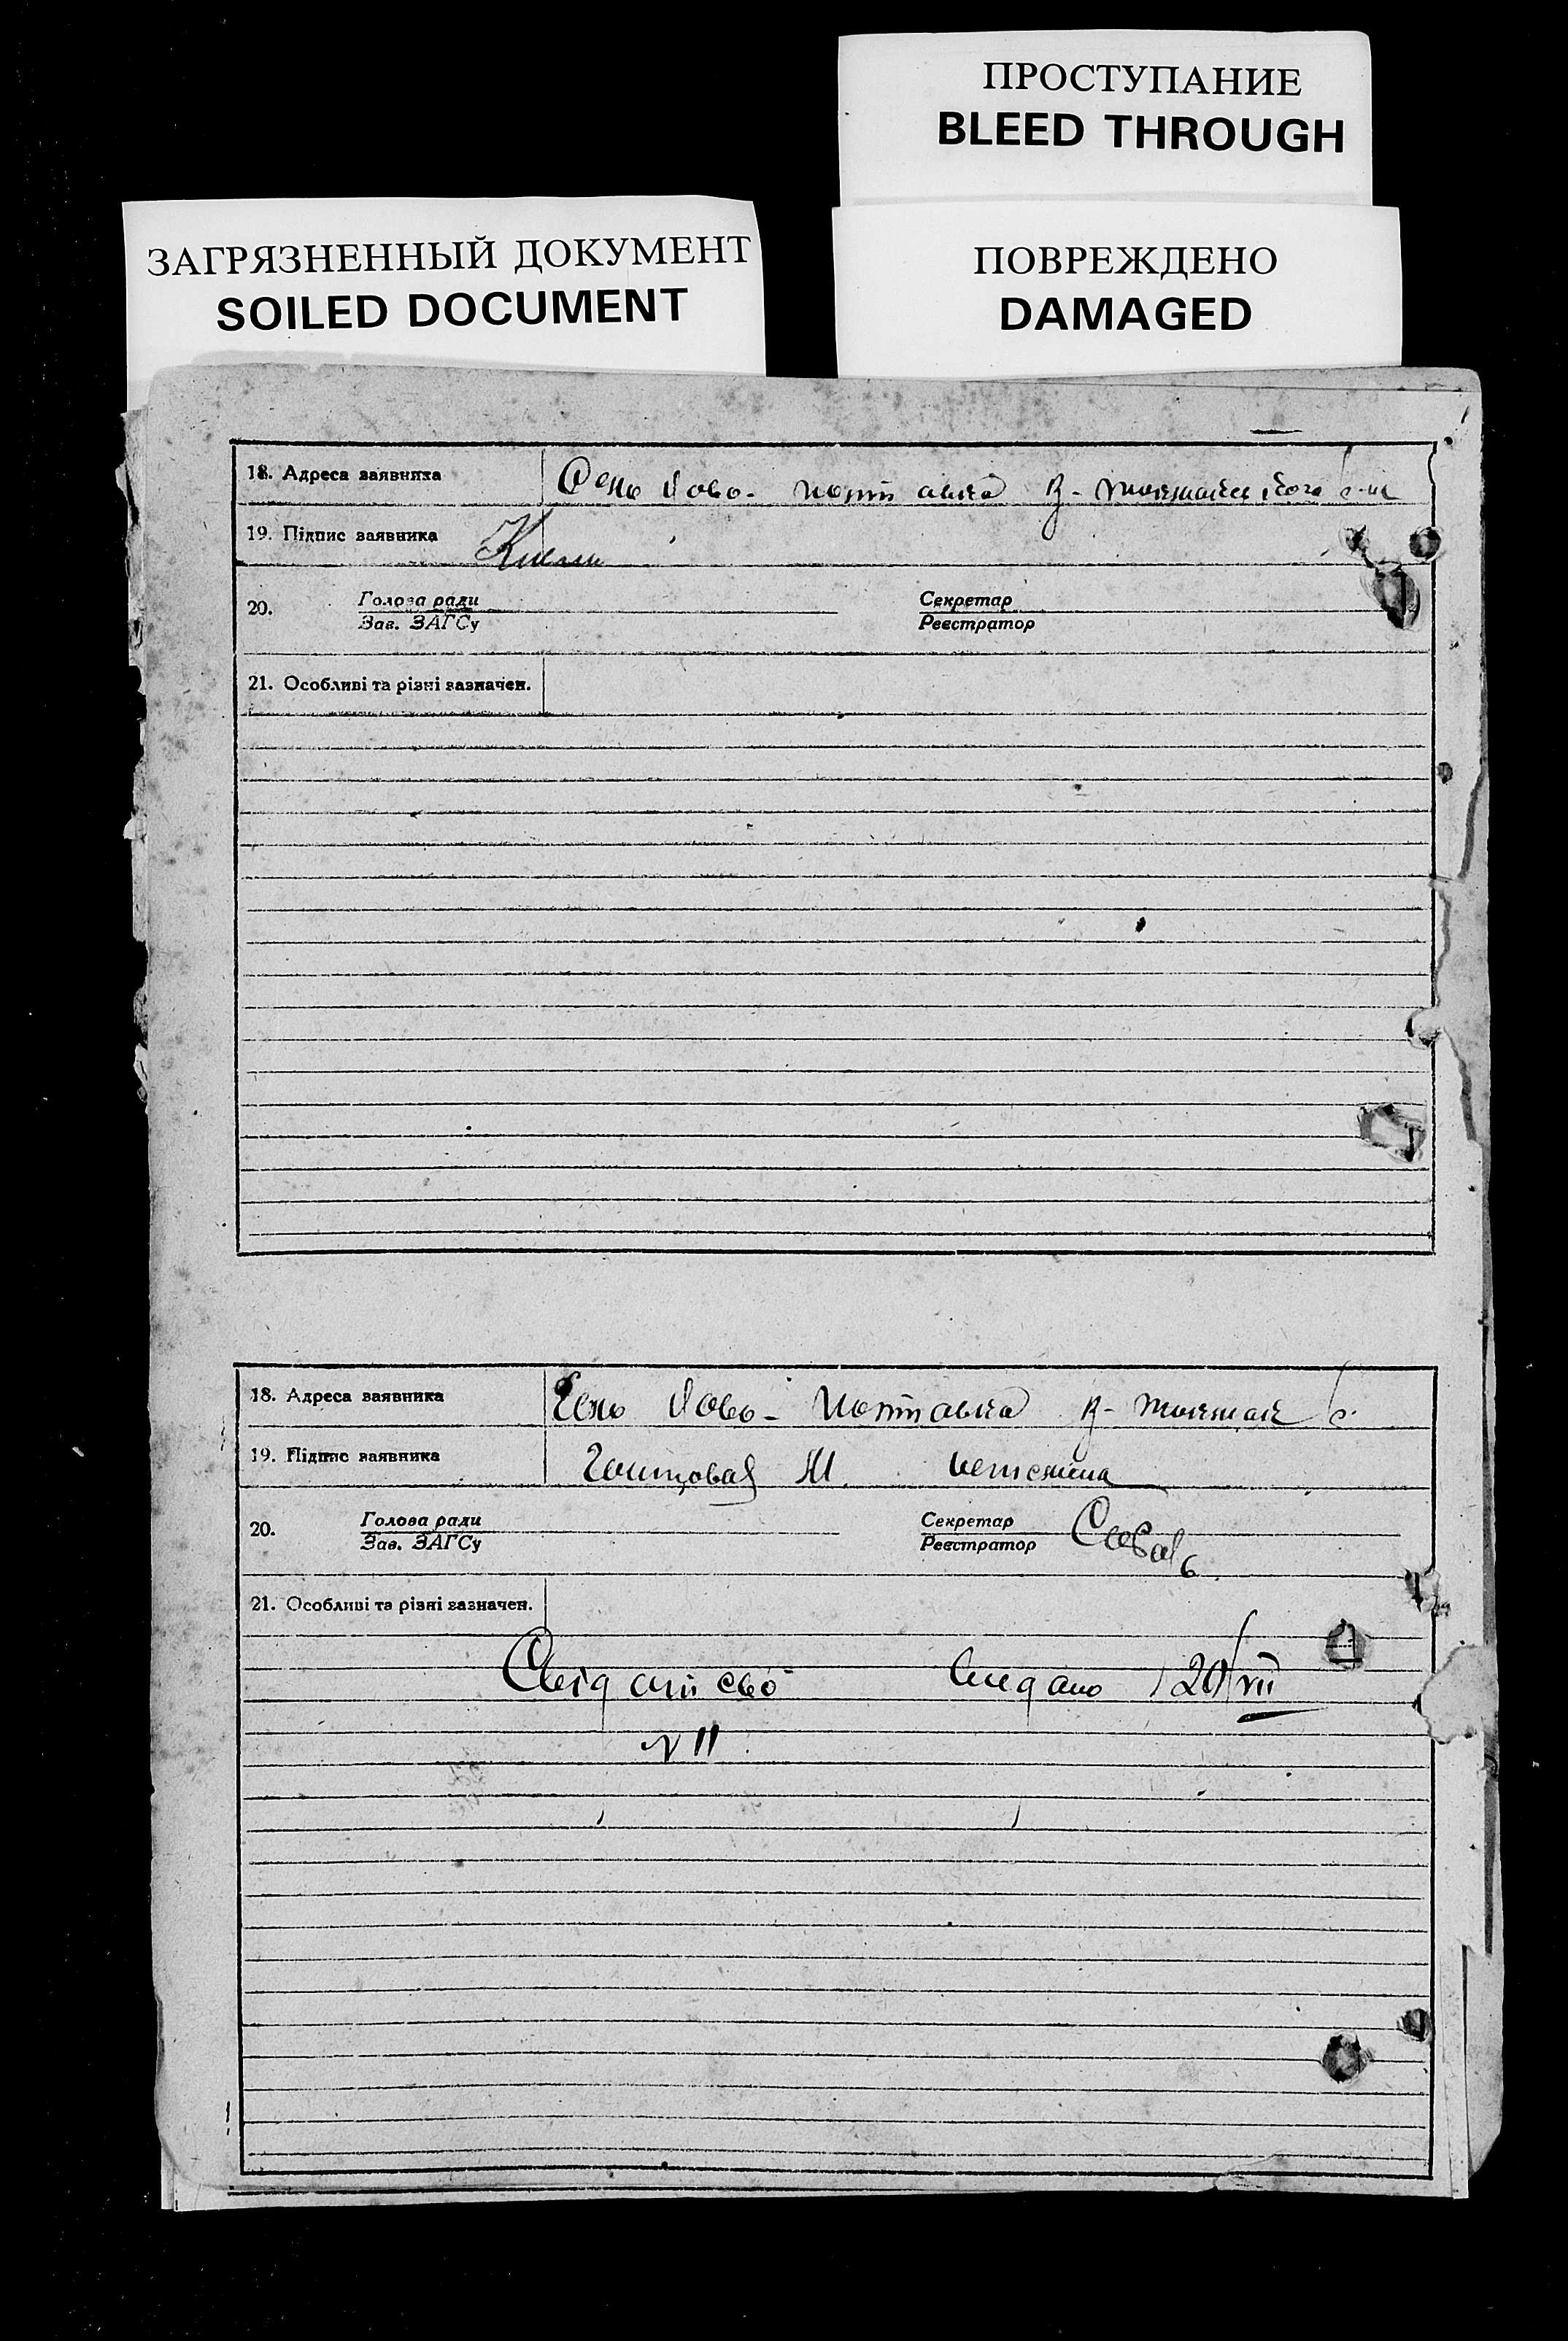 ПРОСТУПАНИЕ
BLEED THROUGH
ЗАГРЯЗНЕННЫЙ ДОКУМЕНТ
SOILED DOCUMENT
ПОВРЕЖДЕНО
DAMAGED
18. Адреса заявника Село Ново-Полтавка
19. Підпис заявника
20. Голова ради Секретар
Зав. ЗАГСу Реєстратор
21. Особливі та різні зазначен.
18. Адреса заявника Село Ново-Полтавка
19. Підпис заявника
20. Голова ради Секретар
Зав. ЗАГСу Реєстратор
21. Особливі та різні зазначен.
Свідоцтво видано 20/VII
N 11